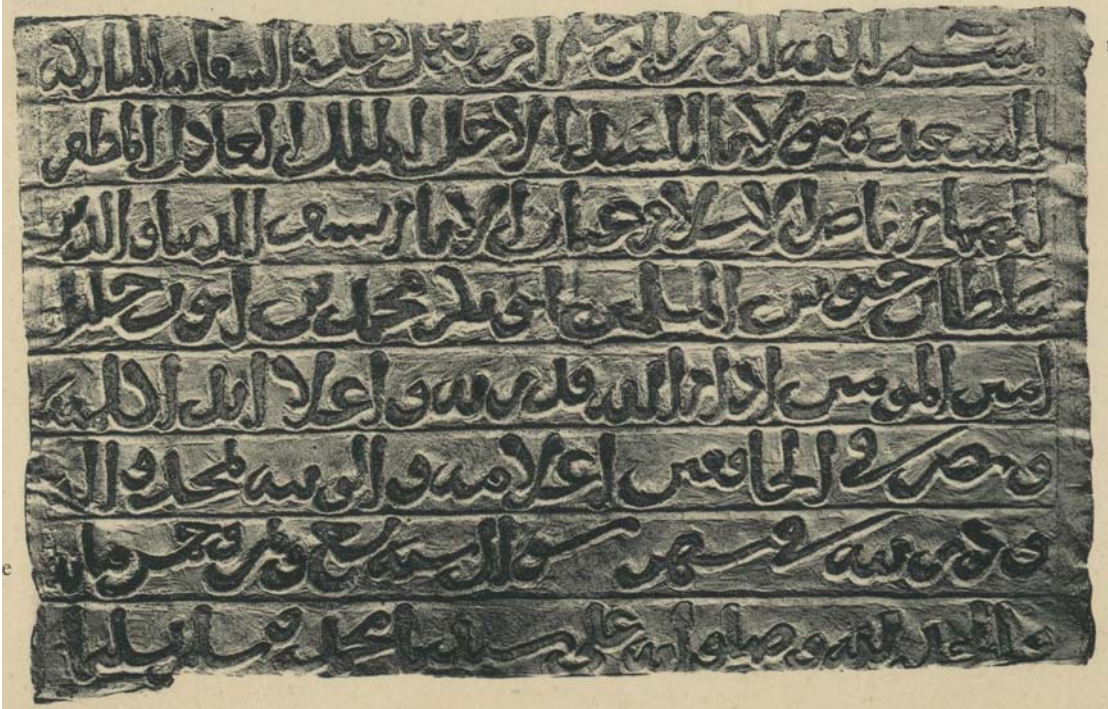 بسم الله الرحمن الرحيم امر بعمل هذه السقاية المباركة
السعيدة مولانا السيد الاجل الملك العادل المظفر
ناصر الاسلام غياث الانام سيف الدنيا والدين
سلطان جيوش المسلمين ابو بكر محمد بن ايوب خليل
امير المومنين ادام الله قدرته واعلا ابدا كلمته
ونصر في الخافقين اعلامه والويته بمحمد واله
وذريته في شهر شوال سنة سبع وخمس مايه
والحمد لله وصلواته على سيدنا محمد وسلم تسليما
e